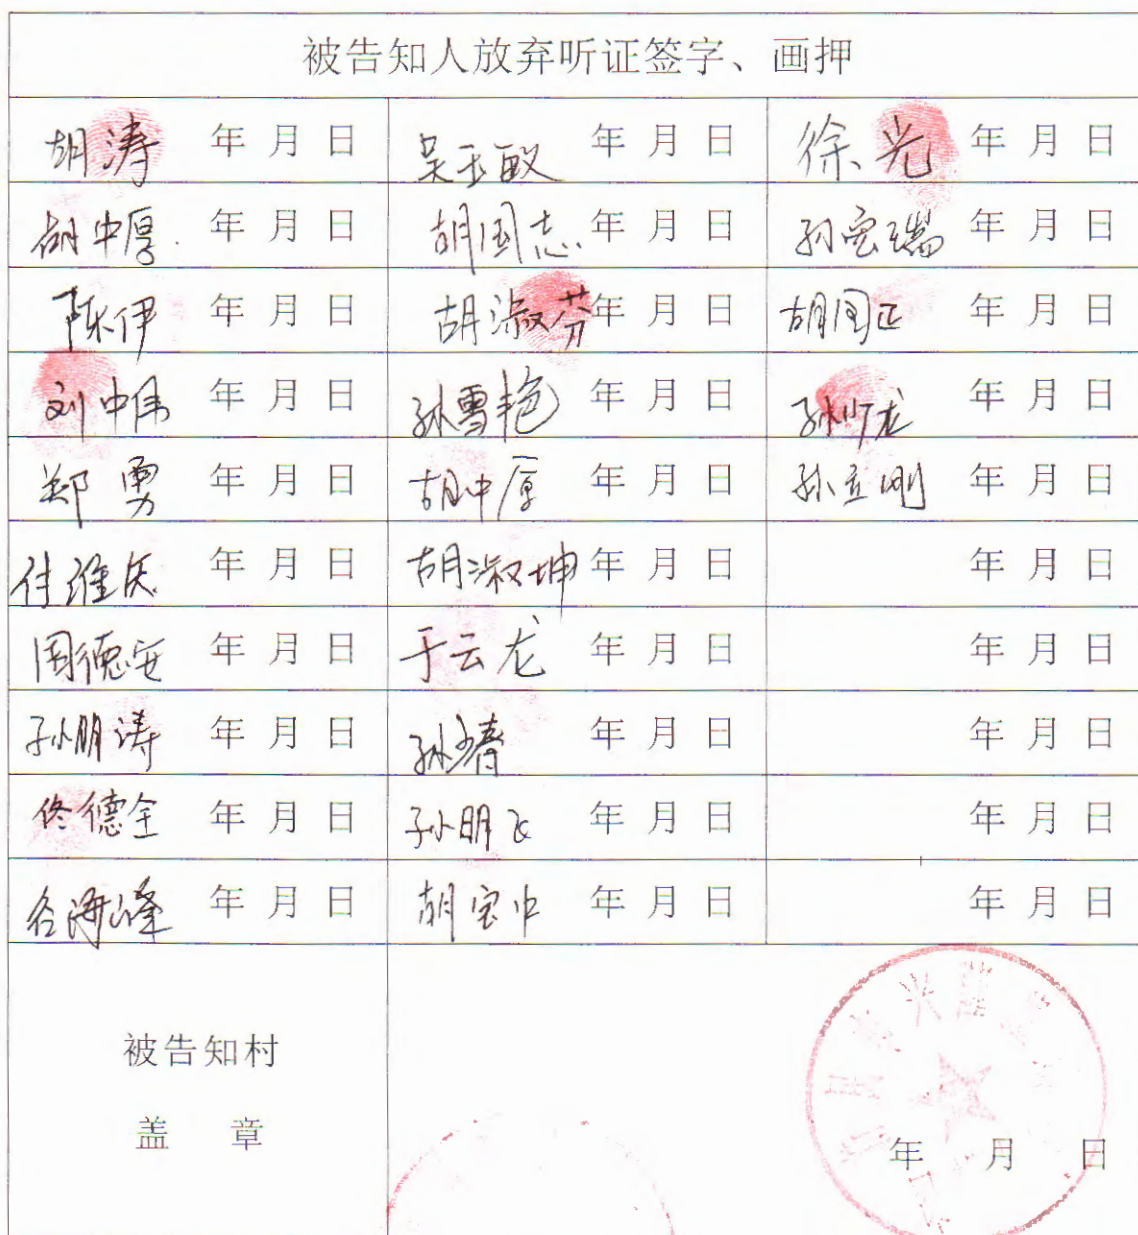 被告知人放弃听证签字、画押
胡涛 年 月 日 吴玉敏 年 月 日 徐光 年 月 日
胡中厚 年 月 日 胡国志 年 月 日 孙宝瑞 年 月 日
陈伊 年 月 日 胡淑芬 年 月 日 胡国正 年 月 日
刘中伟 年 月 日 孙雪艳 年 月 日 孙少龙 年 月 日
郑勇 年 月 日 胡中厚 年 月 日 孙立刚 年 月 日
年 月 日 胡淑坤 年 月 日 年 月 日
周德安 年 月 日 于云龙 年 月 日 年 月 日
孙朋涛 年 月 日 年 月 日 年 月 日
佟德全 年 月 日 孙明飞 年 月 日 年 月 日
海峰 年 月 日 胡宝中 年 月 日 年 月 日
被告知村
盖 章
年 月 日